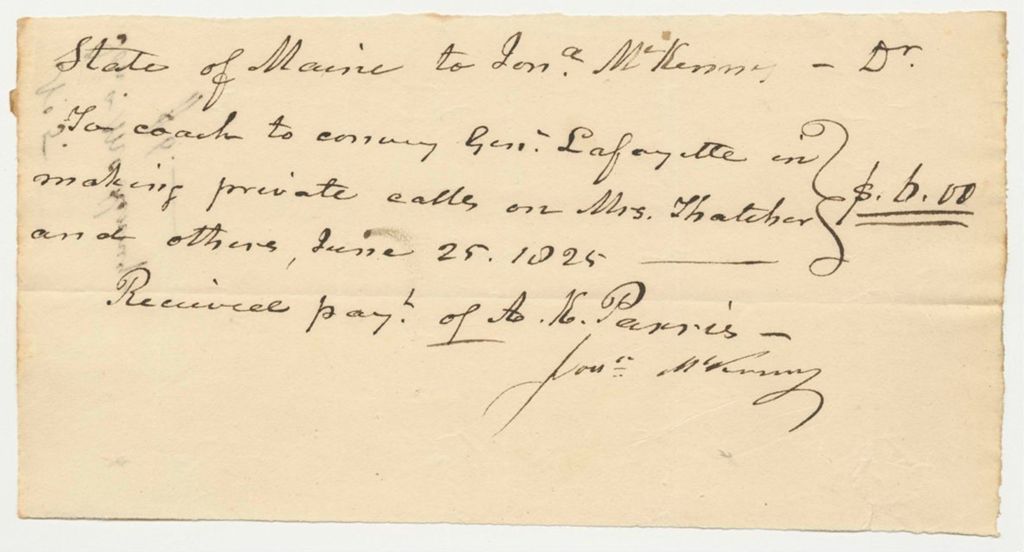 State of Maine to Jon.a McKenny – Dr.
To coach to convey Gen.l Lafayette in
making private calls on Mrs. Thatcher
and others, June 25. 1825 ———
$. 6. 00
Received pay.t of A. K. Parris –
Jon.a McKenny